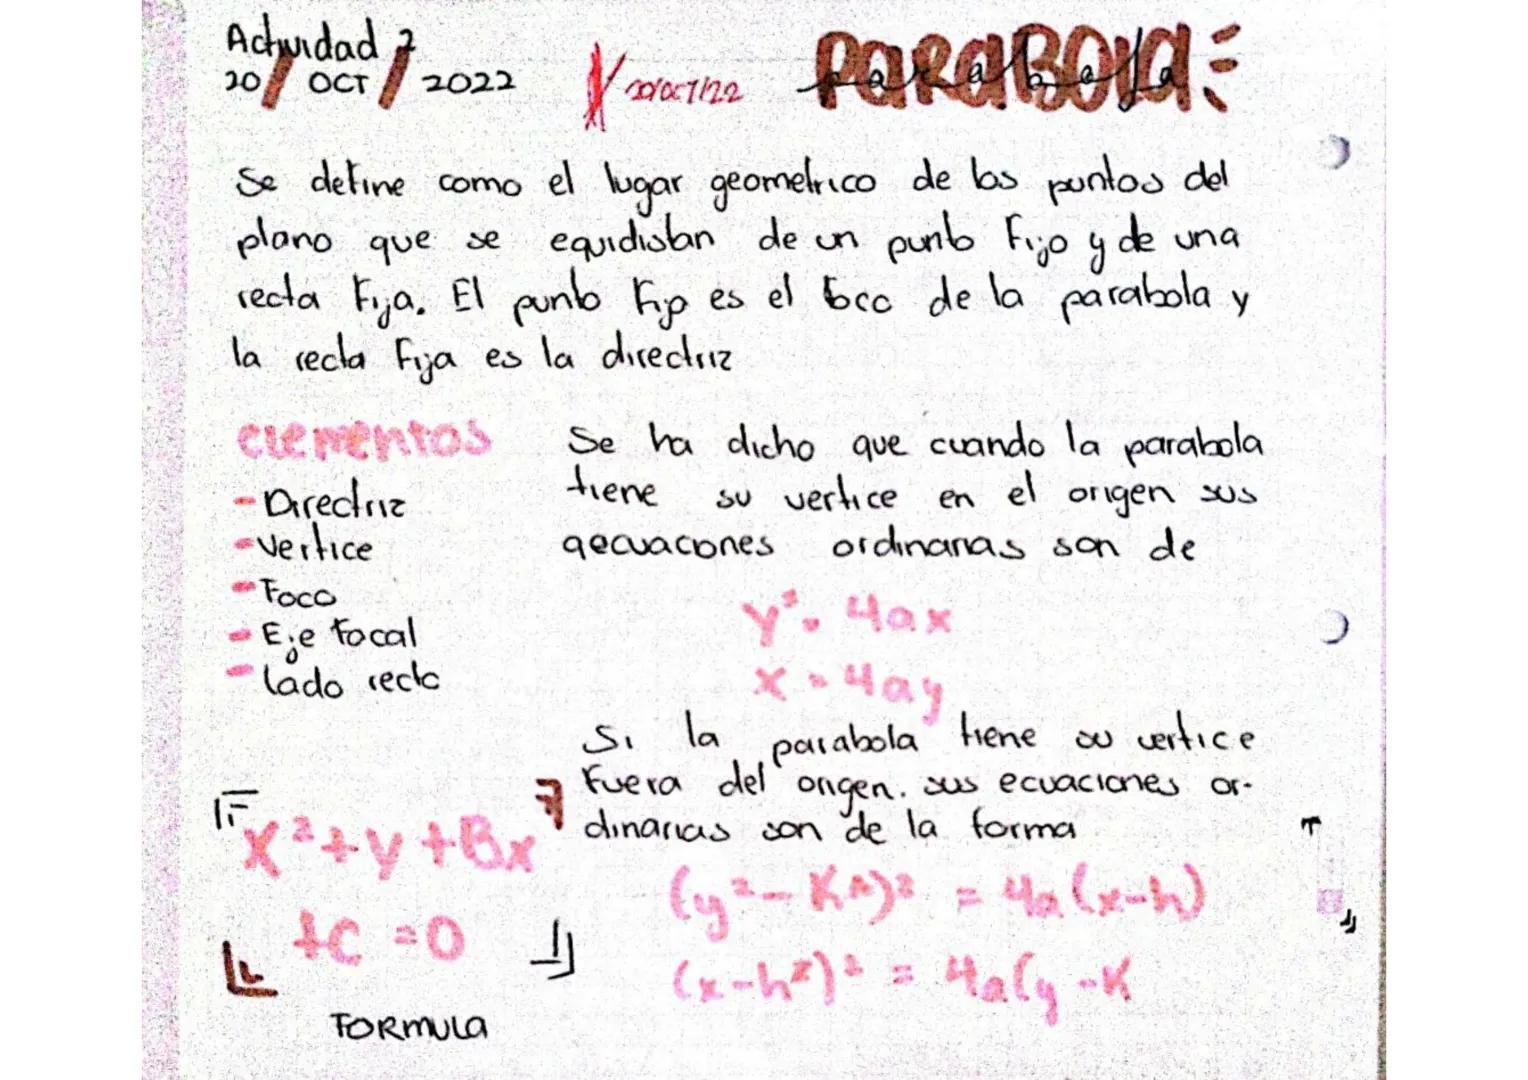 Actividad 2
20/OCT/2022
20/oct/22
Parabola:
parabola
Se define como el lugar geometrico de los puntos del
plano que se equidistan de un punto Fijo y de una
recta Fija. El punto Fijo es el foco de la parabola y
la recta Fija es la directriz
elementos
- Directriz
- Vertice
- Foco
- Eje focal
- lado recto
x²+y+Bx
+C=0
FORMULA
Se ha dicho que cuando la parabola
tiene su vertice en el origen sus
qecuaciones ordinarias son de
y²= 4ax
x = 4ay
Si la parabola tiene su vertice
Fuera del origen. sus ecuaciones or-
dinarias son de la forma
(y²-K²)² = 4a(x-h)
(x-h²)² = 4a(y-K